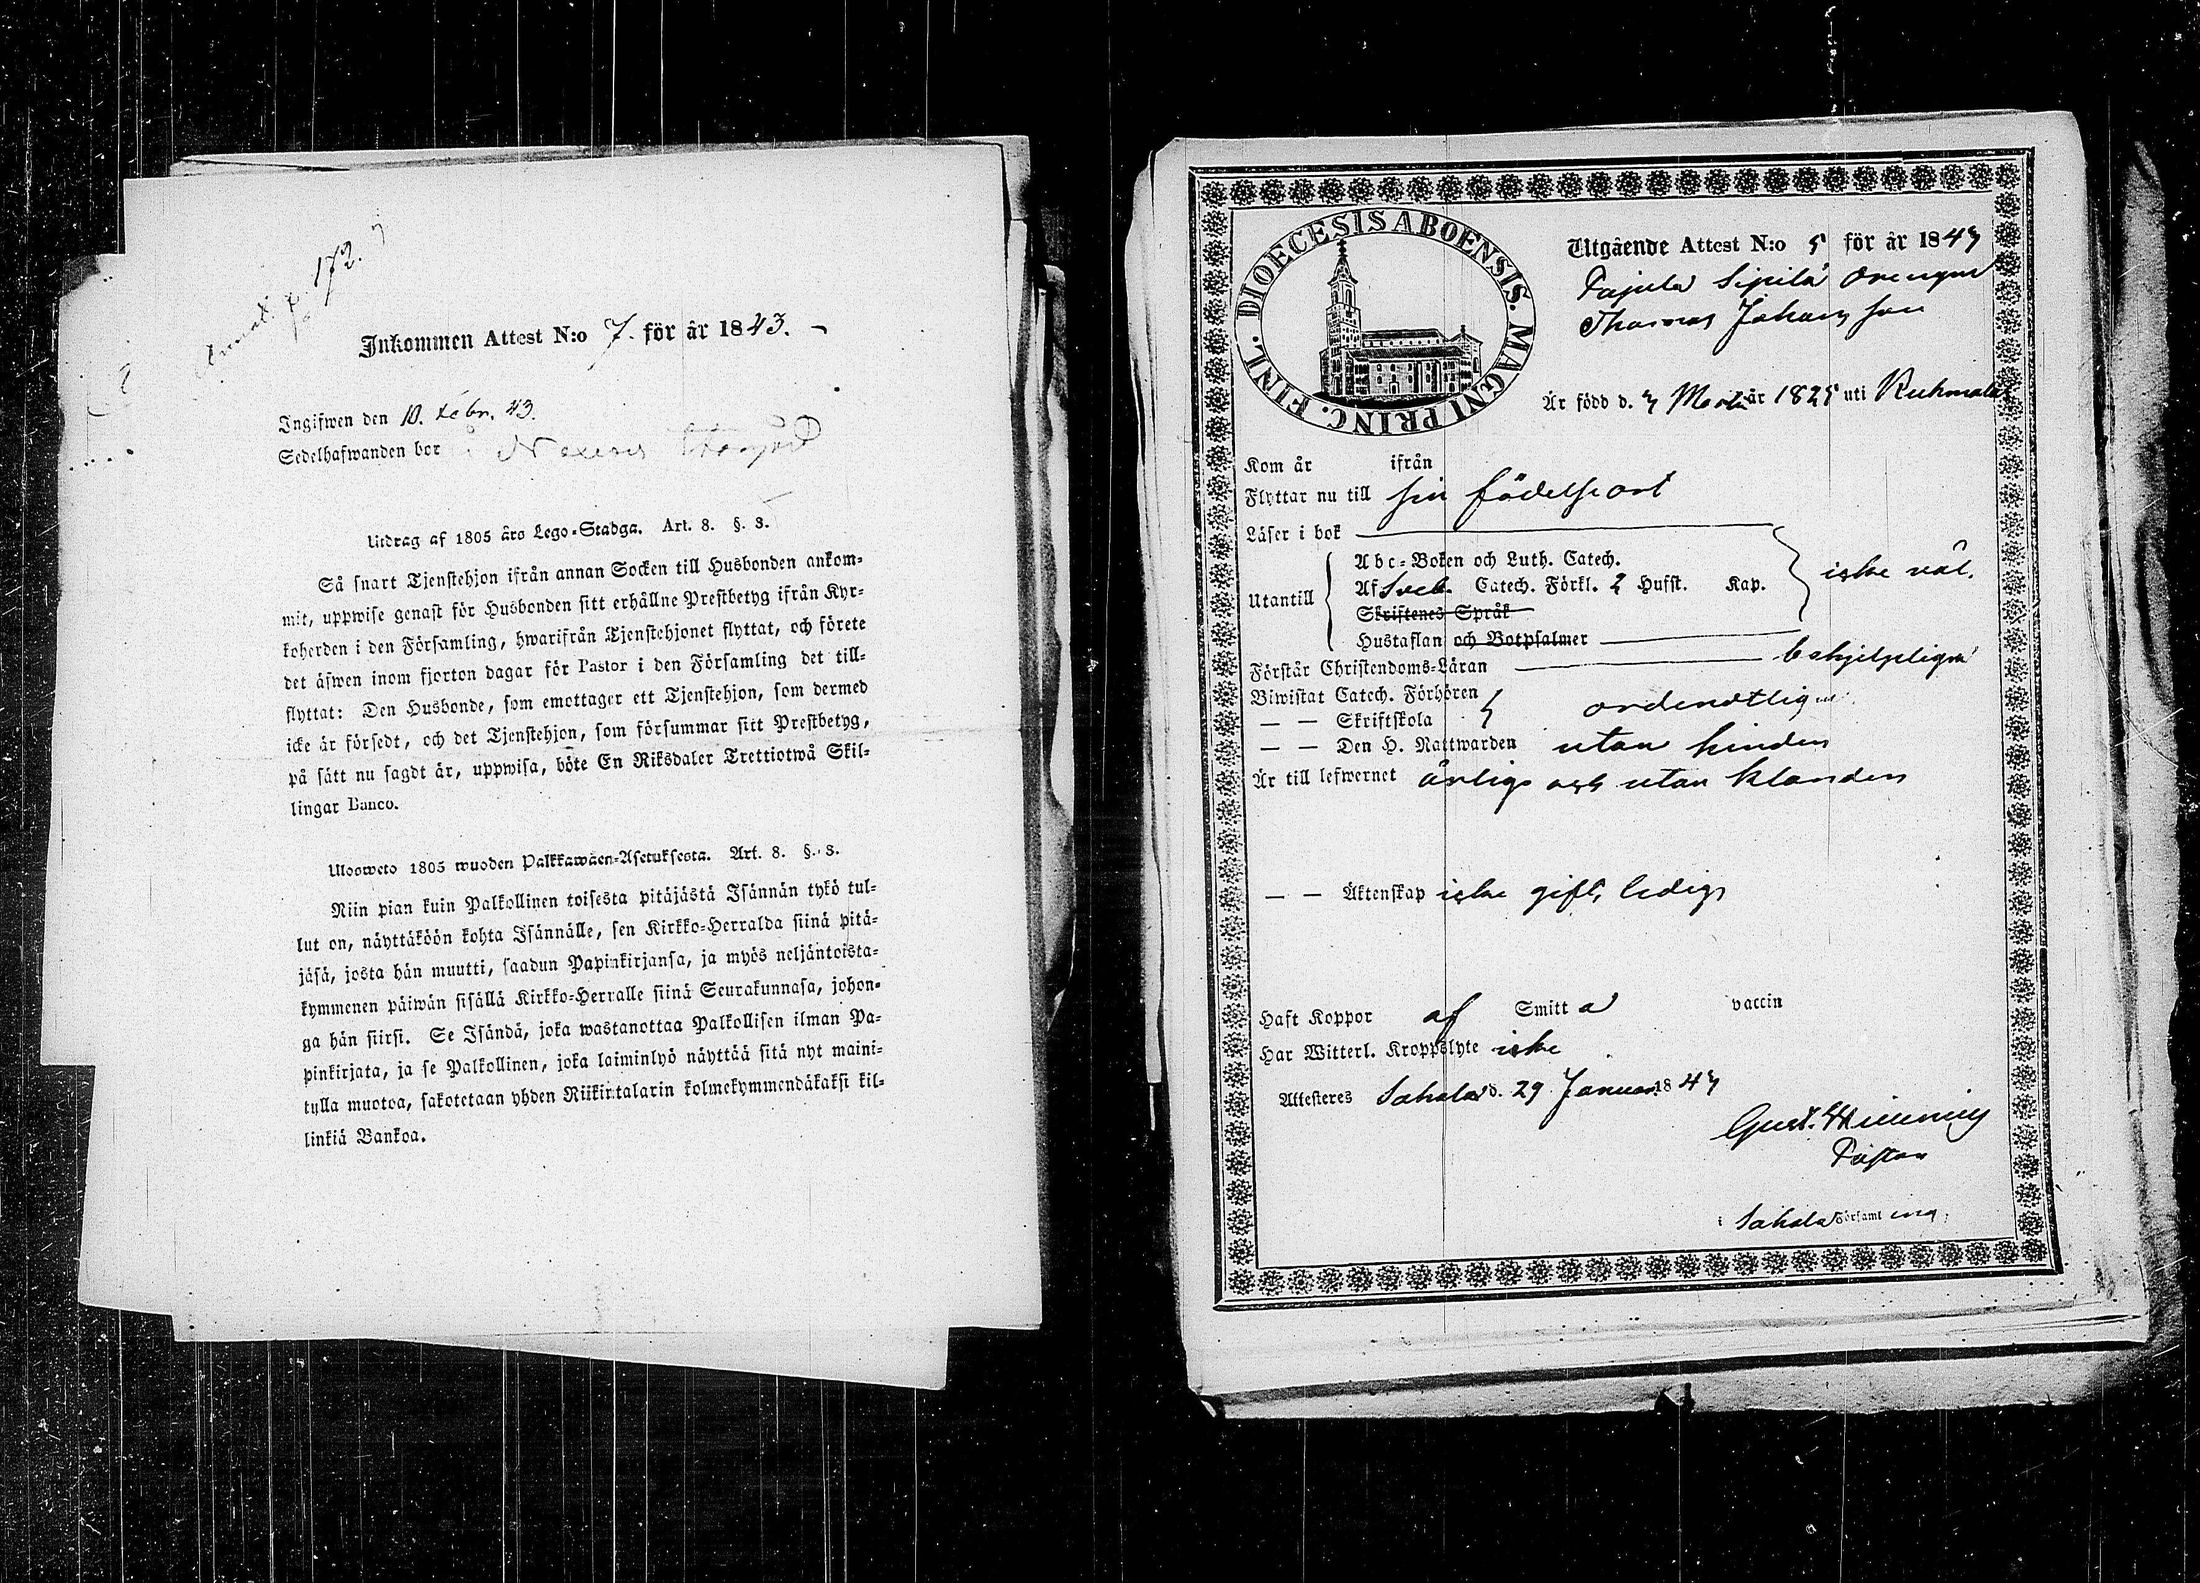 172.
Inkommen Attest N:o 7. för år 1843.
Ingifwen den 10. Febr. 43.
Sedelhafwanden bor
Utdrag af 1805 års Lego-Stadga. Art. 8. §. 3.
Så snart Tjenstehjon ifrån annan Socken till Husbonden ankom-
mit, uppwise genast för Husbonden sitt erhållne Prestbetyg ifrån Kyr-
koherden i den Församling, hwarifrån Tjenstehjonet flyttat, och förete
det äfwen inom fjorton dagar för Pastor i den Församling det till-
flyttat: Den Husbonde, som emottager ett Tjenstehjon, som dermed
icke är försedt, och det Tjenstehjon, som försummar sitt Prestbetyg,
på sätt nu sagdt är, uppwisa, böte En Riksdaler Trettiotwå Skil-
lingar Banco.
Ulosweto 1805 wuoden Palkkawäen-Asetuksesta. Art. 8. §. 3.
Niin pian kuin Palkollinen toisesta pitäjästä Isännän tykö tul-
lut on, näyttäköön kohta Isännälle, sen Kirkko-Herralda siinä pitä-
jäsä, josta hän muutti, saadun Papinkirjansa, ja myös neljäntoista-
kymmenen päiwän sisällä Kirkko-Herralle siinä Seurakunnasa, johon-
ga hän siirsi. Se Isändä, joka wastanottaa Palkollisen ilman Pa-
pinkirjata, ja se Palkollinen, joka laiminlyö näyttää sitä nyt maini-
tulla muotoa, sakotetaan yhden Riikintalarin kolmekymmendäkaksi kil-
linkiä Bankoa.
DIOECESIS ABOENSIS. MAGNI PRINC. FINL.
Utgående Attest N:o 5 för år 1843
Pajula Sipilä Drengen
Thomas Johansson
Är född d. 7 Mars år 1825 uti Kuhmalax
Kom år ifrån
Flyttar nu till sin födelseort
Läser i bok
Utantill
Abc-Boken och Luth. Catech.
Af Sveb. Catech. Förkl. 2 Hufst. Kap.
icke väl.
Skriftenes Språk
Hustaflan och Botpsalmer
Förstår Christendoms-Läran behjelpligen
Biwistat Catech. Förhören
— — Skriftskola
ordentligen
— — Den H. Nattwarden utan hinder
Är till lefwernet ärlig och utan klander
— — Äktenskap icke gift, ledig
Haft Koppor af Smitta vaccin
Har Witterl. Kroppslyte icke
Attesteres Sahalax d. 29 Januar. 1843
Gust. Hemming
Pastor
i Sahalax Församling.